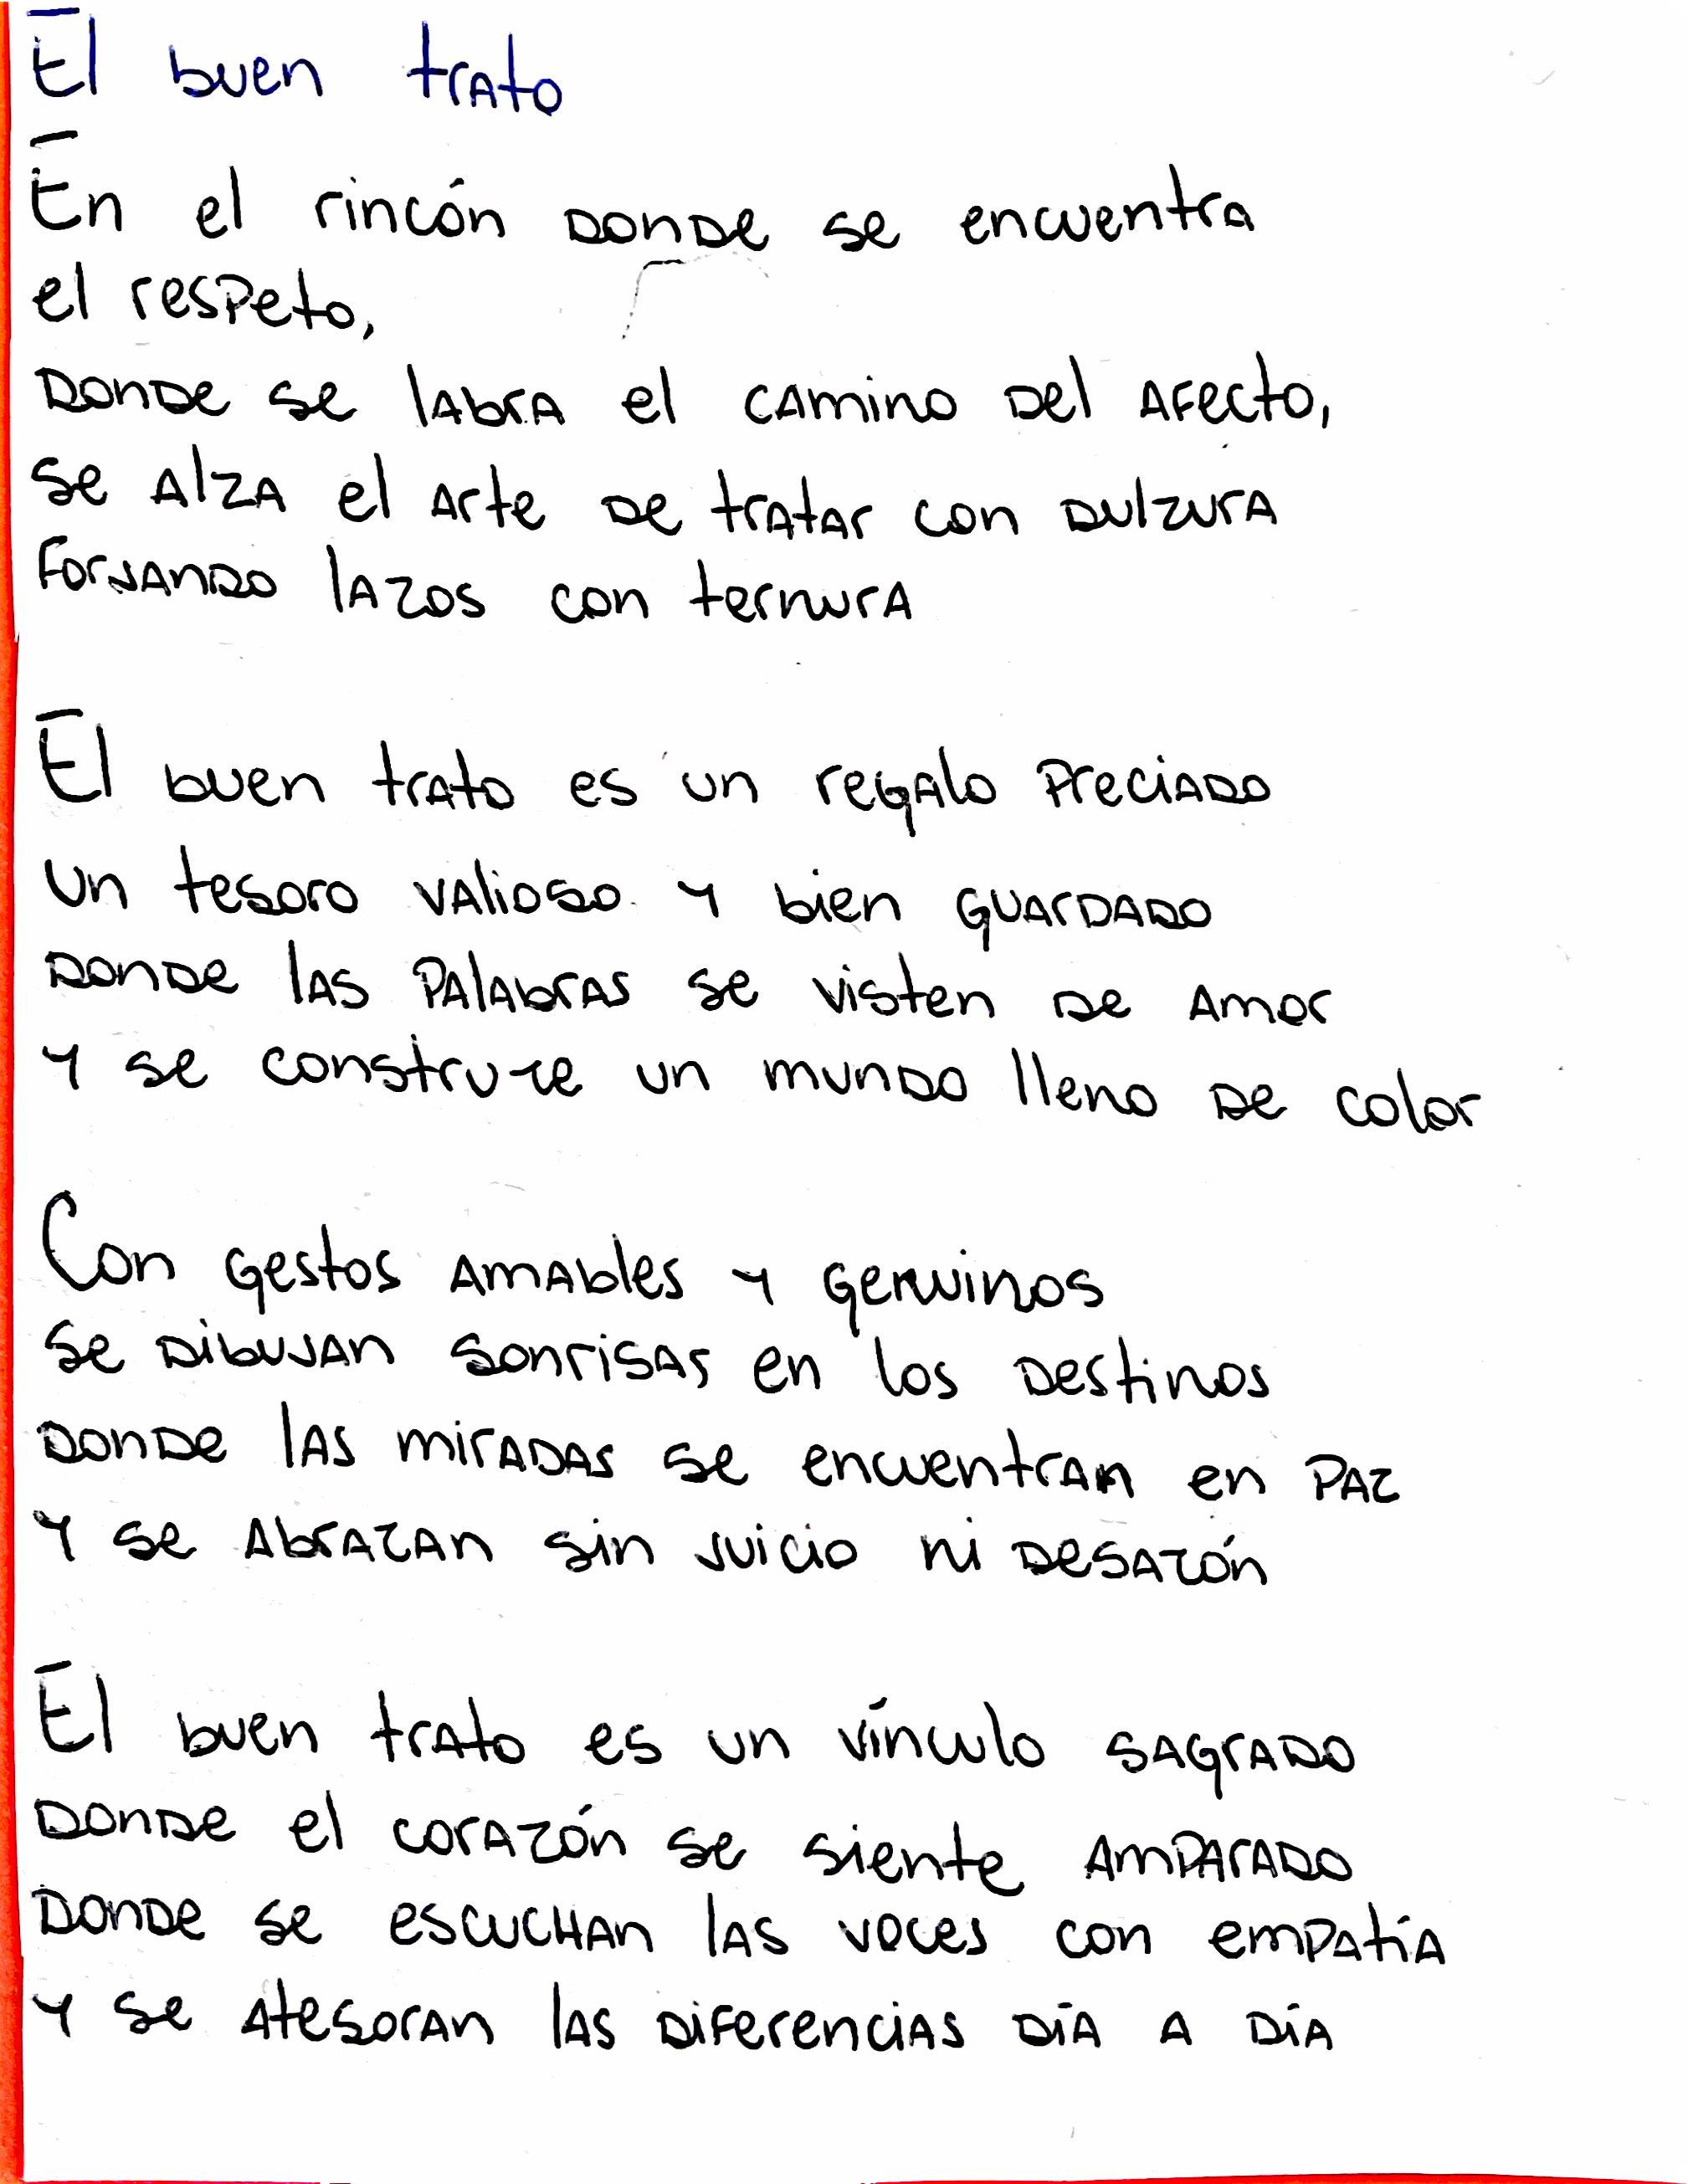 El buen trato
En el rincón donde se encuentra
el respeto,
Donde se labra el camino del afecto,
se alza el arte de tratar con dulzura
forjando lazos con ternura
El buen trato es un regalo preciado
un tesoro valioso y bien guardado
donde las palabras se visten de amor
y se construye un mundo lleno de color
Con gestos amables y genuinos
se dibujan sonrisas en los destinos
donde las miradas se encuentran en paz
y se abrazan sin juicio ni desazón
El buen trato es un vínculo sagrado
donde el corazón se siente amparado
donde se escuchan las voces con empatía
y se atesoran las diferencias día a día